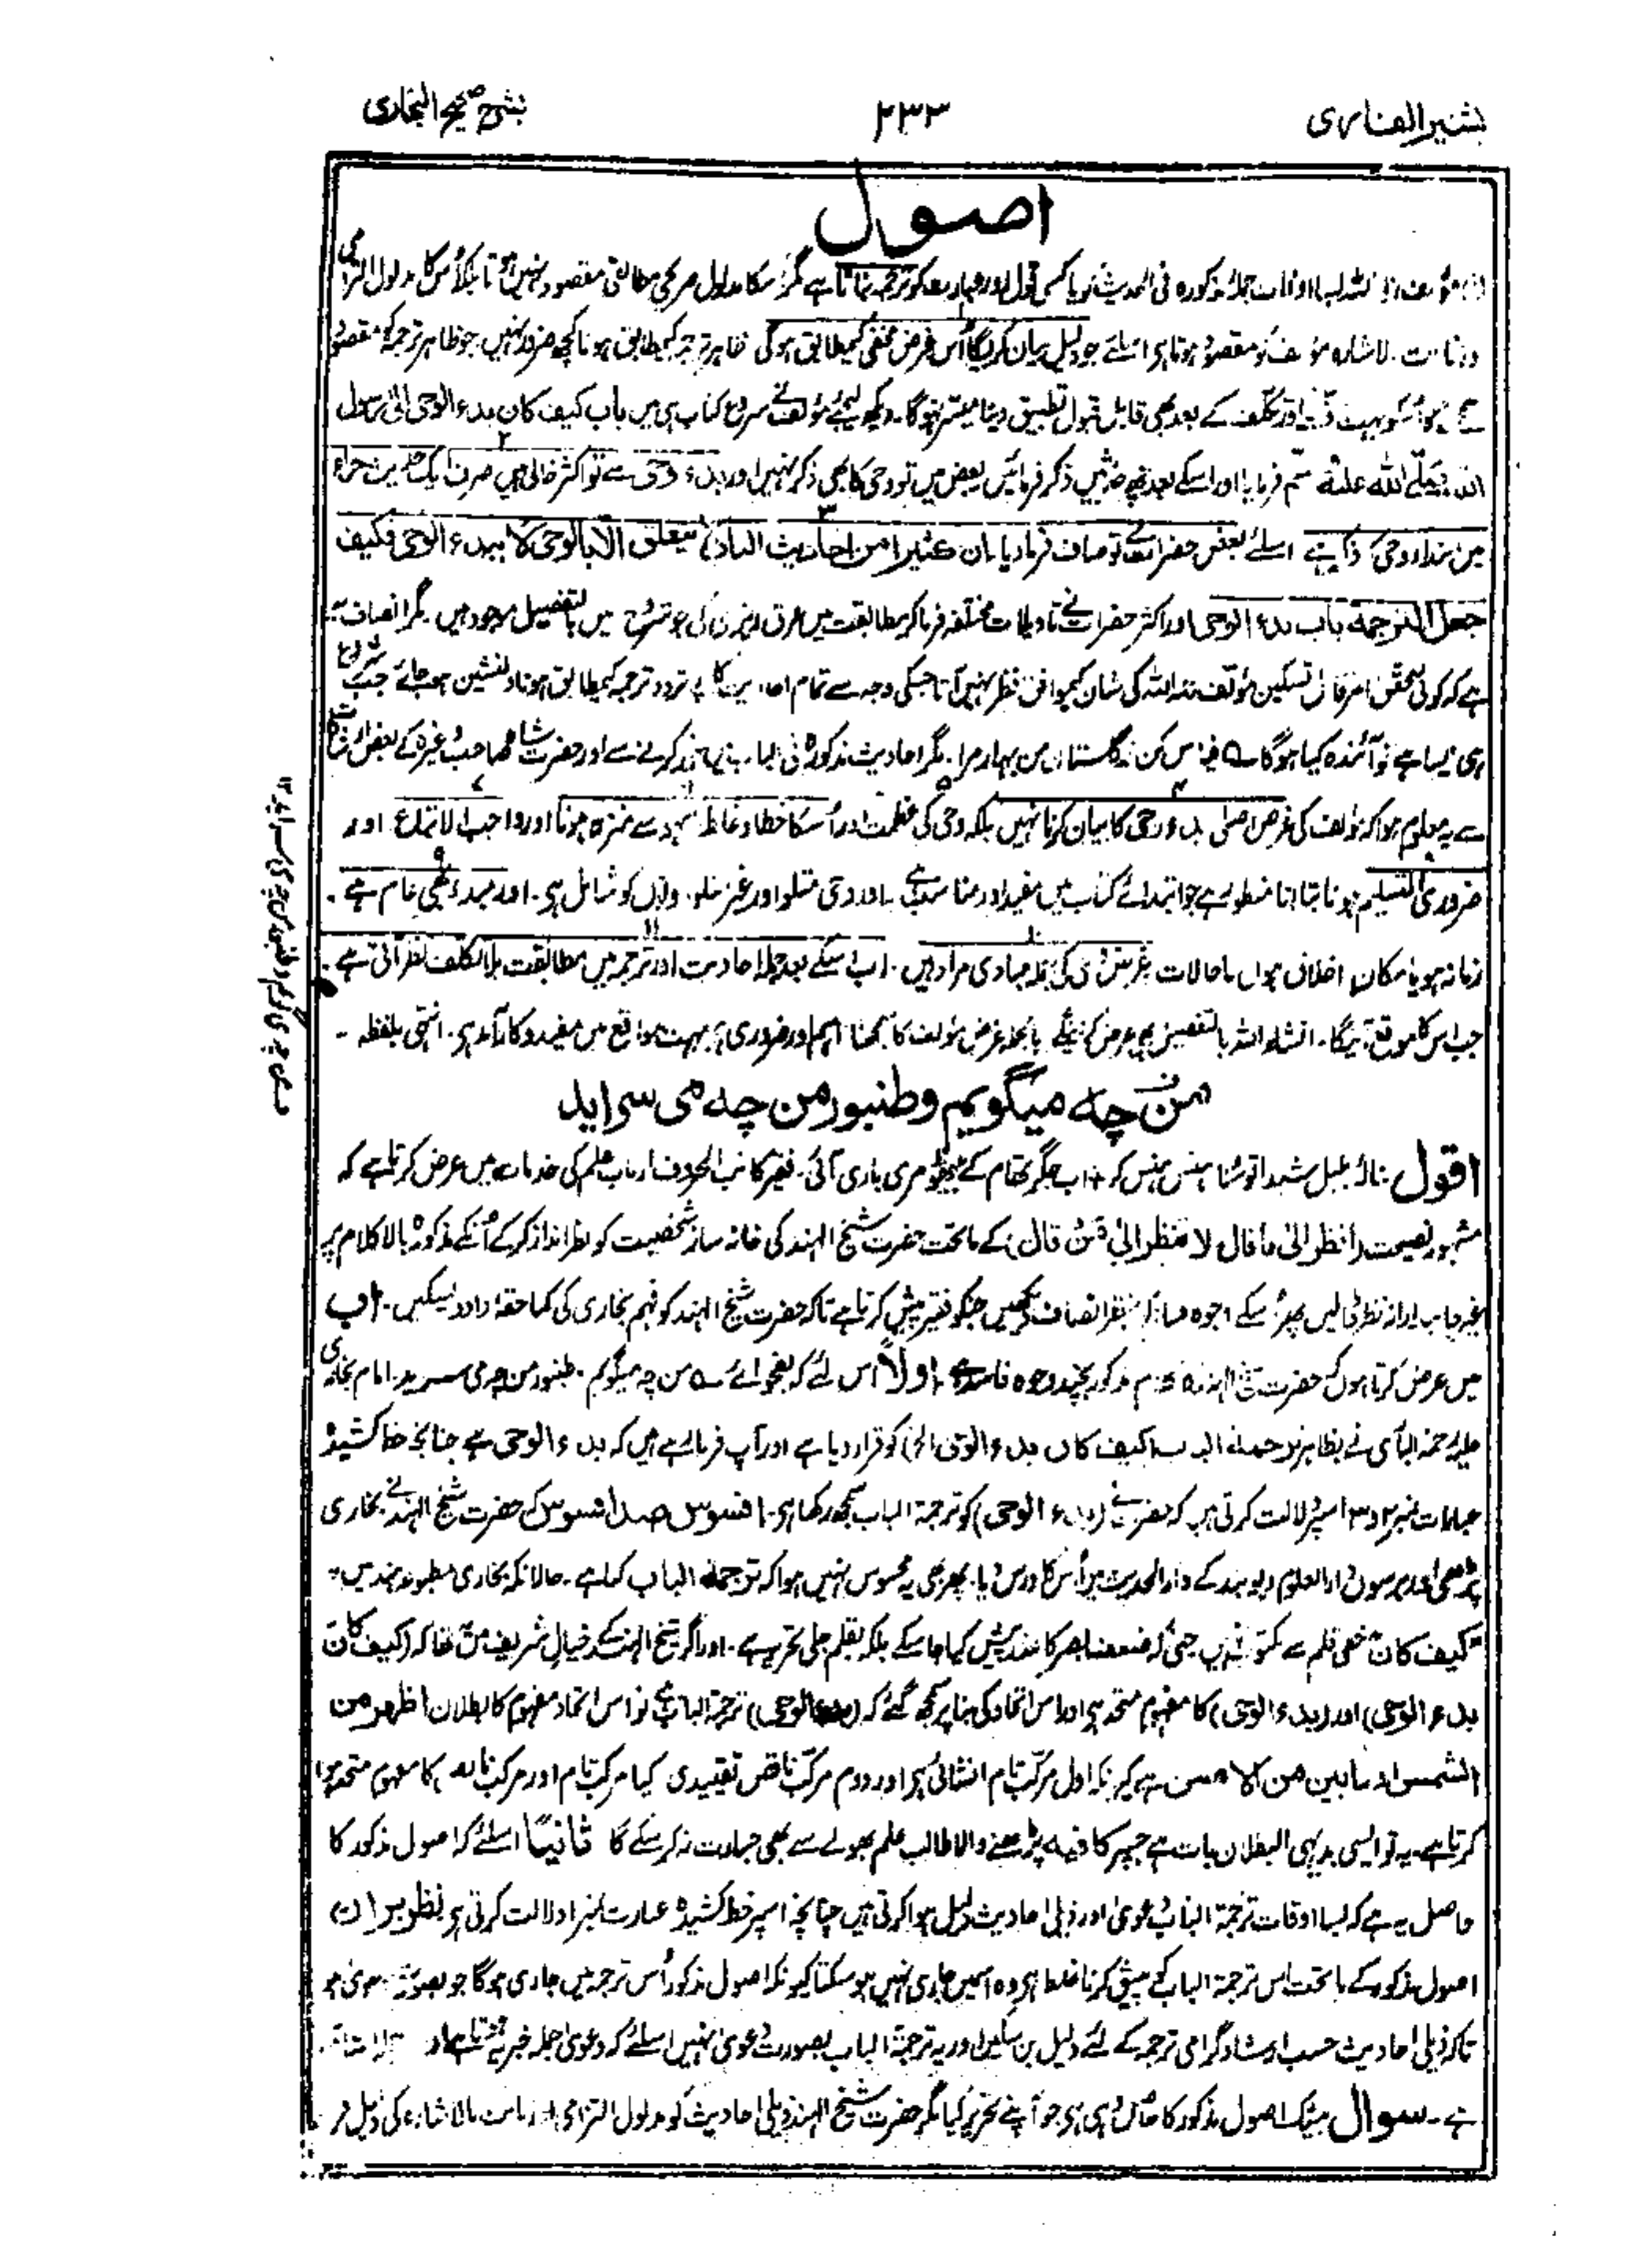 بشیر القاری ۲۳۳ بشرح صحیح البخاری
اصول
مؤلف جملۂ مذکورہ فی الحدیث کو یا کسی قول اور عبارت کو ترجمہ بناتا ہے مگر اسکا مدلول صریحی مطابقی مقصود نہیں ہوتا بلکہ اُس کا مدلول التزامی
مؤلف کو مقصود ہوتا ہے اسلئے جو دلیل بیان کریگا اُس غرض مخفی کے مطابق ہوگی ظاہر ترجمہ کے مطابق ہونا کچھ ضرور نہیں جو ظاہر ترجمہ کو مقصود
اُسکو بہت تکلف کے بعد بھی قابل قبول تطبیق دینا میسّر نہوگا۔ دیکھ لیجئے مؤلف نے شروع کتاب ہی میں باب کیف کان بدء الوحی الی رسول
اللہ صلی اللہ علیہ وسلم فرمایا اور اسکے بعد چھ حدیثیں ذکر فرمائیں بعض میں تو وحی کا بھی ذکر نہیں اور بدء وحی سے تو اکثر خالی ہیں صرف ایک حدیث حراء
میں ابتداء وحی کا ذکر ہے اسلئے بعض حضرات نے تو صاف فرمادیا ان کثیرا من احادیث الباب لا یتعلق الا بالوحی لا ببدء الوحی فکیف
جعل الترجمة باب بدء الوحی اور اکثر حضرات نے تاویلات مختلفہ فرماکر مطابقت میں عرق ریزی کی جو شروح میں بالتفصیل موجود ہیں۔ مگر انصاف یہ
ہے کہ کوئی محقق امر قابل تسکین مؤلف رحمہ اللہ کی شان کے موافق نظر نہیں آتا جسکی وجہ سے تمام احادیث کا بے تردد ترجمہ کے مطابق ہونا دلنشین ہو جائے جب شروع
ہی میں ایسا ہے تو آئندہ کیا ہوگا ؎ قیاس کن زگلستان من بہار مرا۔ مگر احادیث مذکورہ فی الباب میں تدبر کرنے سے اور حضرت شاہ صاحب وغیرہ کے بعض ارشادات
سے یہ معلوم ہوا کہ مؤلف کی غرض اصلی بدء وحی کا بیان کرنا نہیں بلکہ وحی کی عظمت اور اُسکا خطا و غلط سے منزہ ہونا اور واجب الاتباع اور
ضروری التسلیم ہونا بتانا منظور ہے جو ابتدائے کتاب میں مفید اور مناسب ہے۔ اور وحی متلو اور غیر متلو دونوں کو شامل ہے۔ اور مبدء بھی عام ہے۔
زمانہ ہو یا مکان اخلاق ہوں یا حالات غرض وحی کے جملہ مبادی مراد ہیں۔ اب اسکے بعد جملہ احادیث اور ترجمہ میں مطابقت بلاتکلف نظر آتی ہے۔
جب اس کا موقع آئیگا۔ انشاء اللہ بالتفصیل عرض کرینگے بالجملہ غرض مؤلف کا سمجھنا اہم اور ضروری ہے بہت مواقع میں مفید و کارآمد ہے۔ انتہی بلفظہ۔
من چه میگویم و طنبور من چه می سراید
اقول نالۂ بلبل شیدا تو سنا ہنس ہنس کر ۔ اب جگر تھام کے بیٹھو مری باری آئی۔ فقیر کاتب الحروف ارباب علم کی خدمات میں عرض کرتا ہے کہ
مشہور نصیحت (انظر الی ما قال لا تنظر الی من قال) کے ماتحت حضرت شیخ الہند کی خانہ ساز شخصیت کو نظر انداز کرکے اُنکے مذکورۂ بالا کلام پر
غیر جانب دارانہ نظر ڈالیں پھر اُسکے وجوہ فساد بنظر انصاف دیکھیں جنکو فقیر پیش کرتا ہے تاکہ حضرت شیخ الہند کو فہم بخاری کی کما حقہ داد دے سکیں۔ اب
میں عرض کرتا ہوں کہ حضرت شیخ الہند کا کلام مذکور بچند وجوہ فاسد ہے اولاً اس لئے کہ بفحوائے ؎ من چہ میگویم و طنبور من چہ می سراید۔ امام بخاری
علیہ رحمۃ الباری نے بظاہر ترجمۃ الباب (کیف کان بدء الوحی الخ) کو قرار دیا ہے اور آپ فرما رہے ہیں کہ بدء الوحی ہے چنانچہ خط کشیدہ
عبارات نمبر ۲ و ۳ اسپر دلالت کرتی ہیں کہ حضرت نے (بدء الوحی) کو ترجمۃ الباب سمجھ رکھا ہے۔ افسوس صد افسوس کہ حضرت شیخ الہند نے بخاری
پڑھی اور برسوں دارالعلوم دیوبند کے دارالحدیث میں اُس کا درس دیا۔ پھر بھی یہ محسوس نہیں ہوا کہ ترجمۃ الباب کیا ہے۔ حالانکہ بخاری مطبوعہ ہند میں
کیف کان خفی قلم سے مکتوب نہیں حتی کہ ضعف بصر کا عذر پیش کیا جا سکے بلکہ بقلم جلی تحریر ہے۔ اور اگر شیخ الہند کے خیال شریف میں تھا کہ (کیف کان
بدء الوحی) اور (بدء الوحی) کا مفہوم متحد ہے اور اس اتحاد کی بنا پر سمجھ گئے کہ (بدء الوحی) ترجمۃ الباب ہے تو اس اتحاد مفہوم کا بطلان اظہر من
الشمس و ابین من الامس ہے کیونکہ اول مرکب تام انشائی ہے اور دوم مرکب ناقص تقییدی کیا مرکب تام اور مرکب ناقص کا مفہوم متحد ہوا
کرتا ہے۔ یہ تو ایسی بدیہی البطلان بات ہے جسپر کافیہ پڑھنے والا طالب علم بھولے سے بھی جسارت نہ کر سکے گا ثانیاً اسلئے کہ اصول مذکور کا
حاصل یہ ہے کہ بسا اوقات ترجمۃ الباب دعویٰ اور ذیلی احادیث دلیل ہوا کرتی ہیں چنانچہ اسپر خط کشیدہ عبارت نمبر ۱ دلالت کرتی ہے
اصول مذکور کے ماتحت اس ترجمۃ الباب کو پیش کرنا غلط ہے وہ اسمیں جاری نہیں ہو سکتا کیونکہ اصول مذکور اُس ترجمہ میں جاری ہوگا جو بصورت دعویٰ ہو
تاکہ ذیلی احادیث حسب ارشاد گرامی ترجمہ کے لئے دلیل بن سکیں اور یہ ترجمۃ الباب بصورت دعویٰ نہیں اسلئے کہ دعویٰ جملہ خبریہ ہوتا ہے اور
ہے۔ سوال بیشک اصول مذکور کا مآل یہی ہے جو آپنے تحریر کیا مگر حضرت شیخ الہند ذیلی احادیث کو مدلول التزامی بالاشارہ کی دلیل